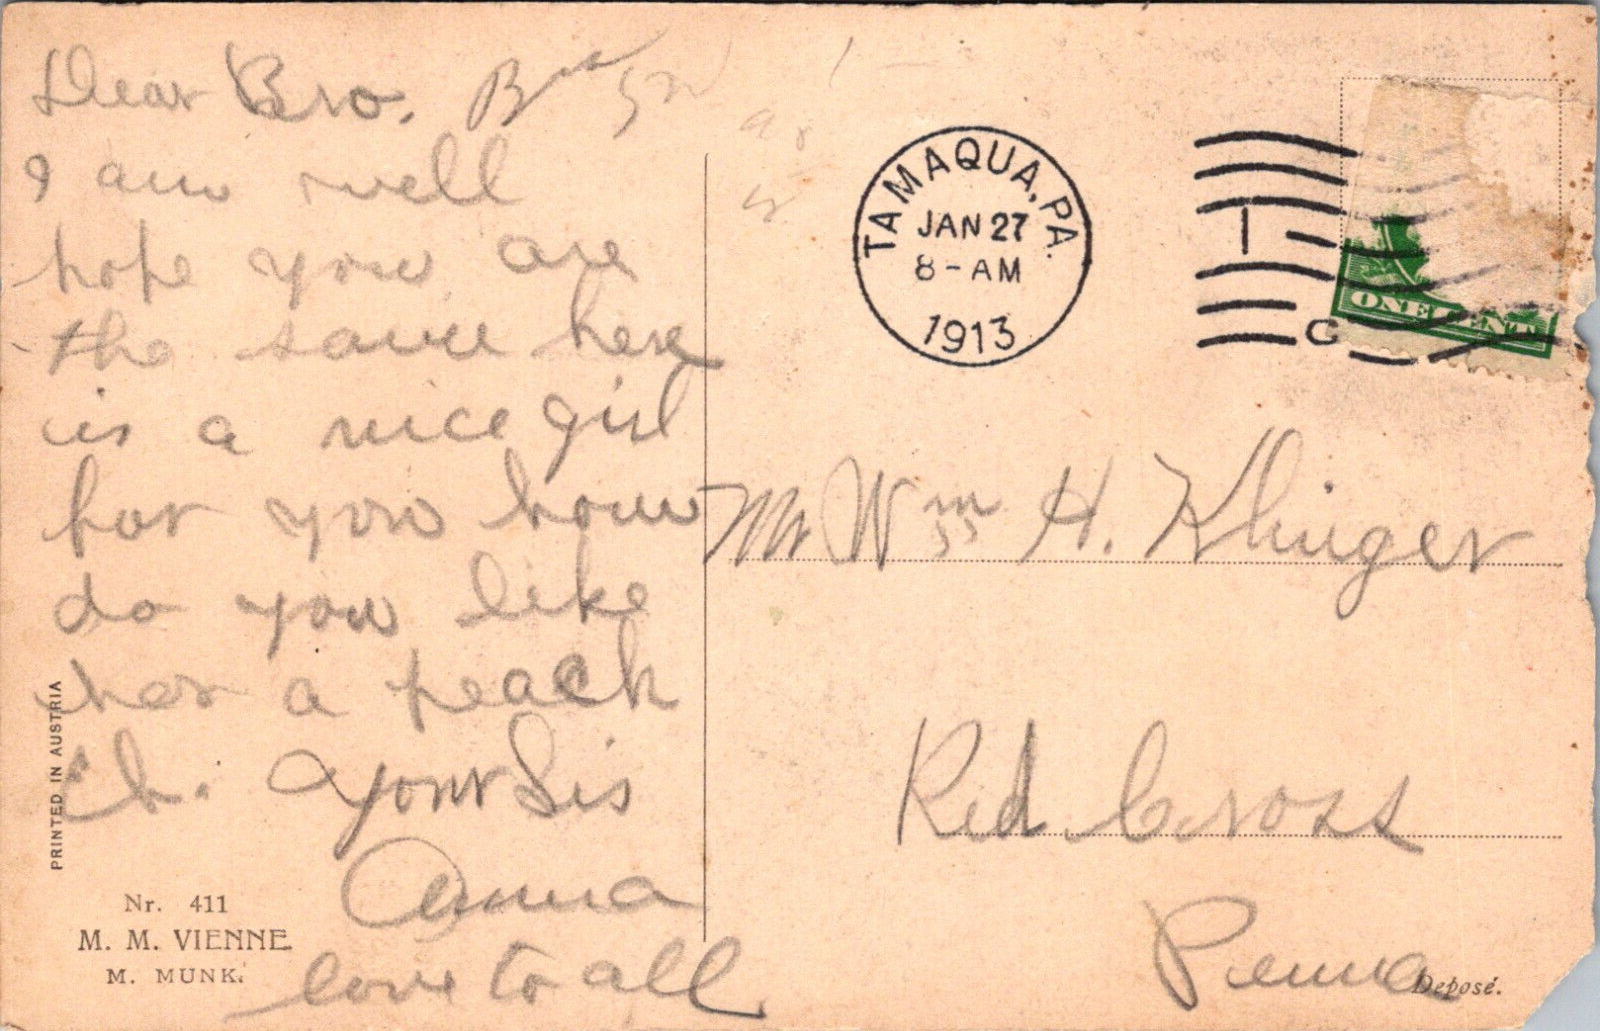 Dear Bro.
I am well
hope you are
the same here
is a nice girl
for you how
do you like
her a peach
Eh. Your Sis
Anna
love to all
TAMAQUA, PA.
JAN 27
8-AM
1913
ONE CENT
Mr Wm H. Klinger
Red Cross
Penna
PRINTED IN AUSTRIA
Nr. 411
M. M. VIENNE
M. MUNK.
Deposé.